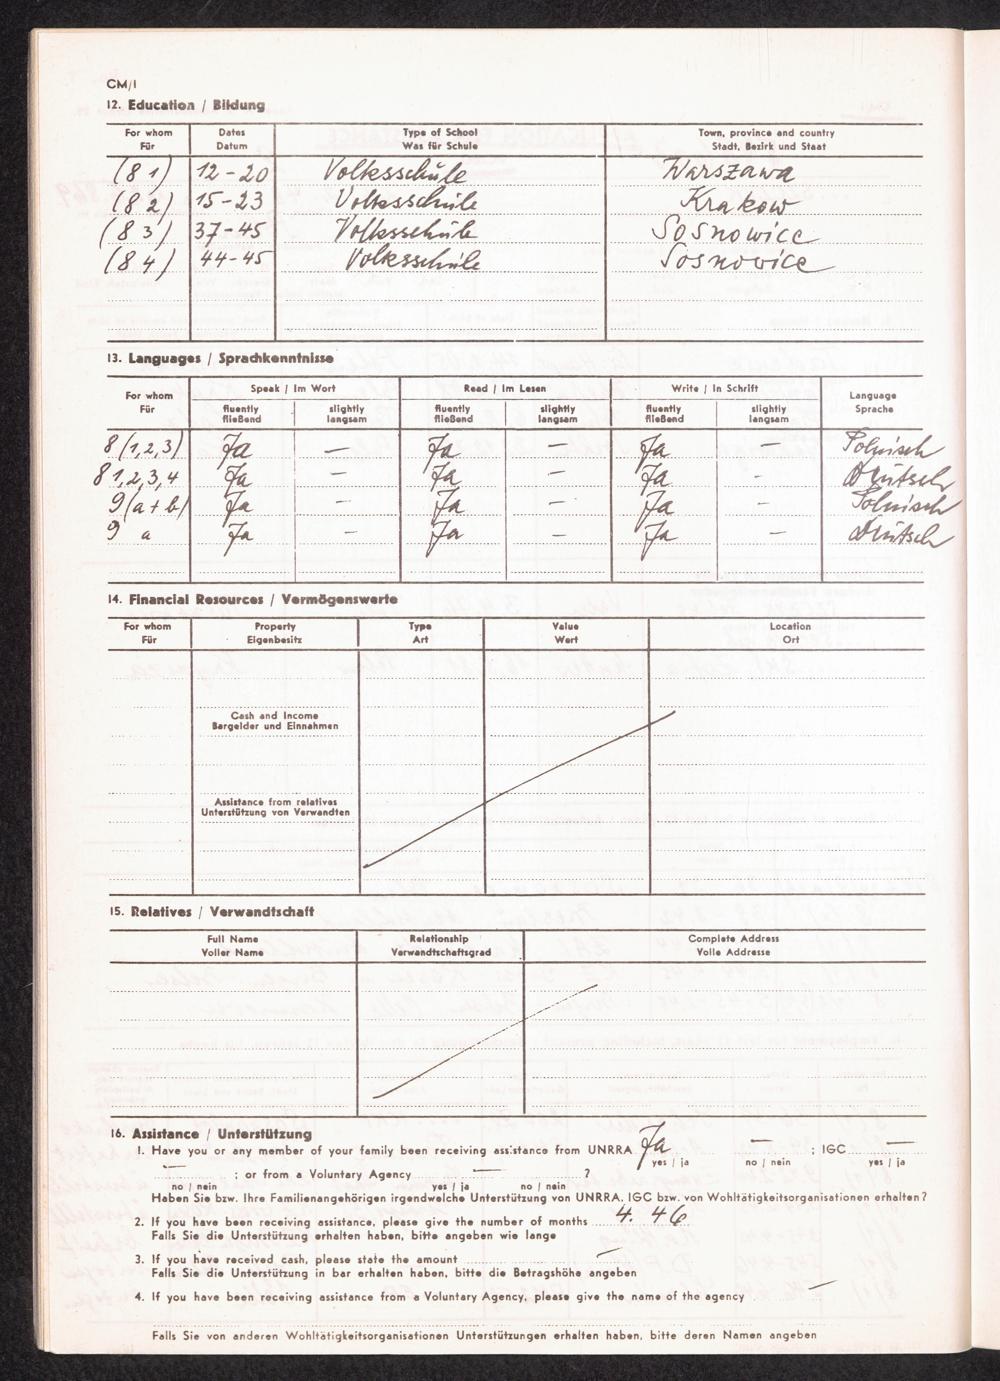 CM/1
12. Education / Bildung
For whom Dates Type of School Town, province and country
Für Datum Was für Schule Stadt, Bezirk und Staat
(8 1) 12-20 Volksschule Warszawa
(8 2) 15-23 Volksschule Krakow
(8 3) 37-45 Volksschule Sosnowice
(8 4) 44-45 Volksschule Sosnowice
13. Languages / Sprachkenntnisse
For whom Speak / Im Wort Read / Im Lesen Write / In Schrift Language
Für fluently slightly fluently slightly fluently slightly Sprache
fließend langsam fließend langsam fließend langsam
8 (1,2,3) Ja — Ja — Ja — Polnisch
8 1,2,3,4 Ja — Ja — Ja — Deutsch
9 (a + b) Ja — Ja — Ja — Polnisch
9 a Ja — Ja — Ja — Deutsch
14. Financial Resources / Vermögenswerte
For whom Property Type Value Location
Für Eigenbesitz Art Wert Ort
Cash and Income
Bargelder und Einnahmen
Assistance from relatives
Unterstützung von Verwandten
15. Relatives / Verwandtschaft
Full Name Relationship Complete Address
Voller Name Verwandtschaftsgrad Volle Addresse
16. Assistance / Unterstützung
1. Have you or any member of your family been receiving assistance from UNRRA Ja — ; IGC —
yes / ja no / nein yes / ja
— ; or from a Voluntary Agency — ?
no / nein yes / ja no / nein
Haben Sie bzw. Ihre Familienangehörigen irgendwelche Unterstützung von UNRRA, IGC bzw. von Wohltätigkeitsorganisationen erhalten?
2. If you have been receiving assistance, please give the number of months 4. 46
Falls Sie die Unterstützung erhalten haben, bitte angeben wie lange
3. If you have received cash, please state the amount —
Falls Sie die Unterstützung in bar erhalten haben, bitte die Betragshöhe angeben
4. If you have been receiving assistance from a Voluntary Agency, please give the name of the agency —
Falls Sie von anderen Wohltätigkeitsorganisationen Unterstützungen erhalten haben, bitte deren Namen angeben